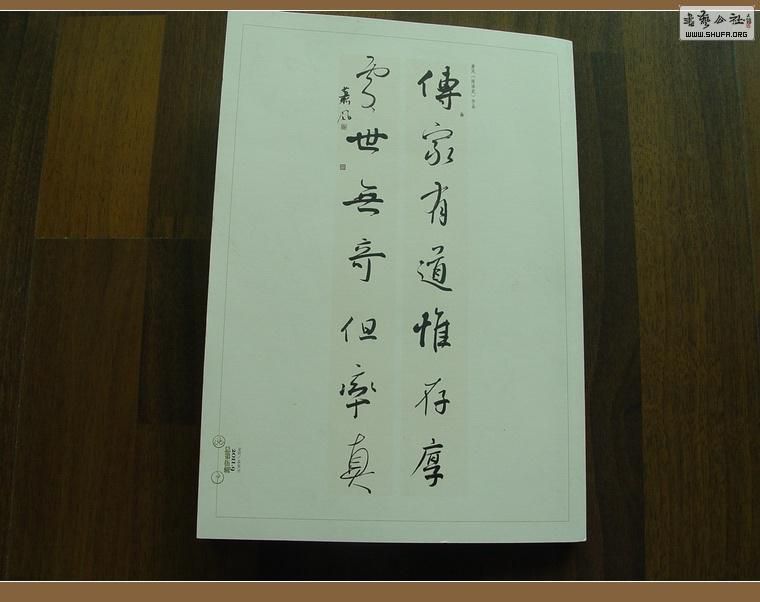 書藝公社
WWW.SHUFA.ORG
傳家有道惟存厚
處世無奇但率真
嘉风
2011.9